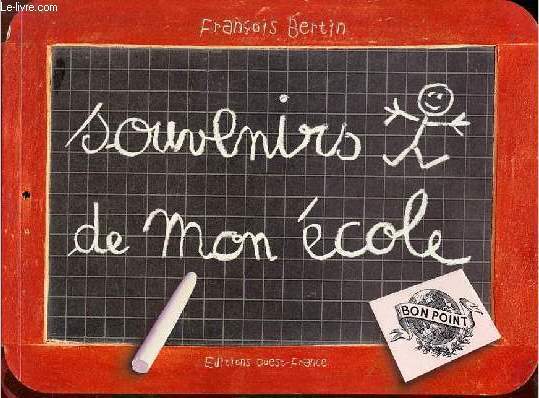 Le-livre.com
François Bertin
souvenirs
de mon école
BON POINT
Editions Ouest-France